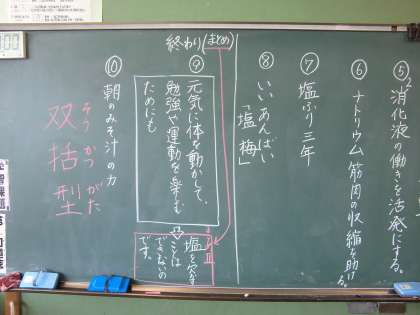 ⑤消化液の働きを活発にする。
⑥ナトリウム筋肉の収縮を助ける。
⑦塩ふり三年
⑧いい「あんばい
「塩梅」
終わり(まとめ)
⑨元気に体を動かして、
勉強や運動を楽しむ
ためにも
塩を欠かす
ことは
できないの
です。
⑩朝のみそ汁の力
双括型
そうかつがた